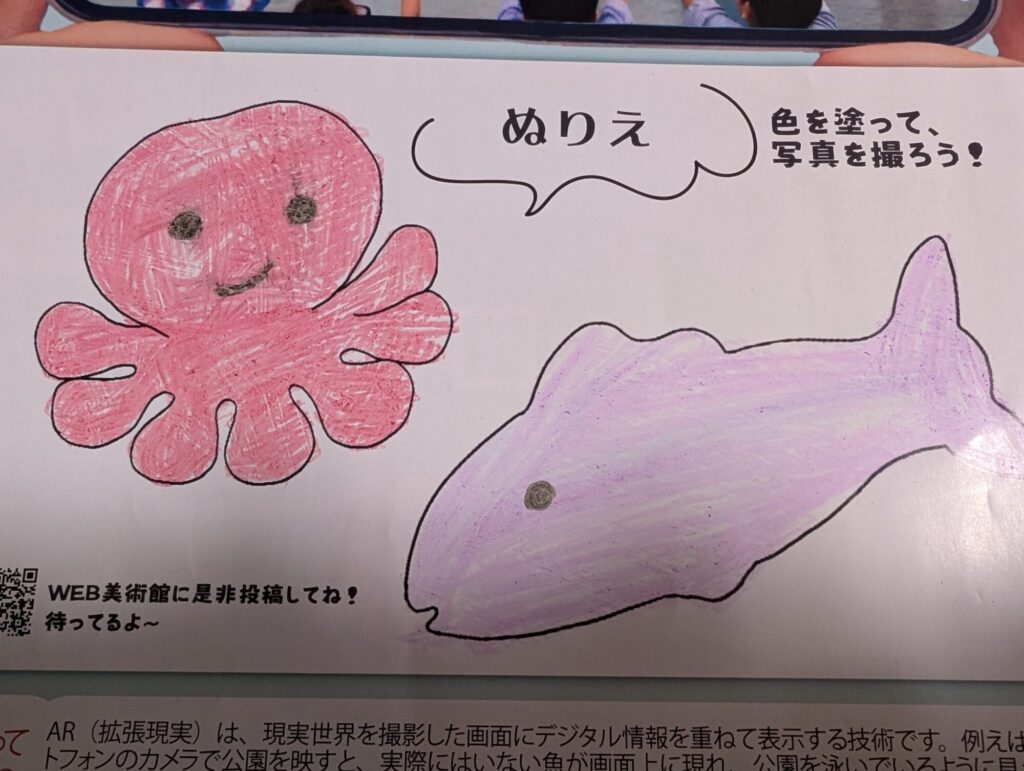 ぬりえ
色を塗って、
写真を撮ろう！
WEB美術館に是非投稿してね！
待ってるよ～
って
AR（拡張現実）は、現実世界を撮影した画面にデジタル情報を重ねて表示する技術です。例えば
トフォンのカメラで公園を映すと、実際にはいない魚が画面上に現れ、公園を泳いでいるように見